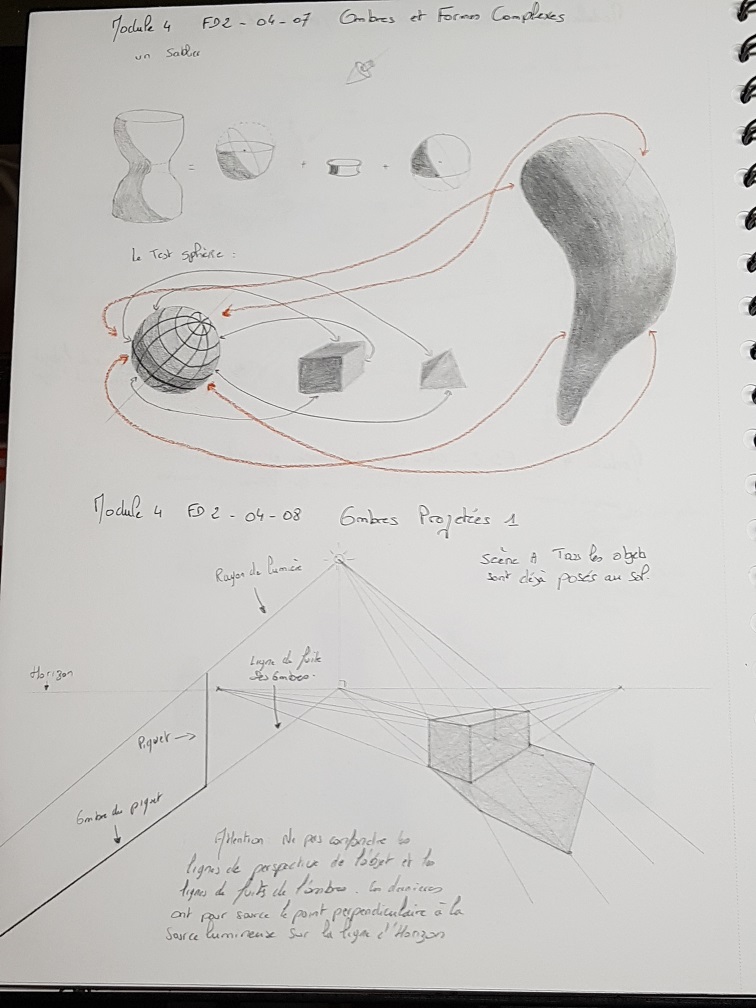 Module 4 FD2 - 04-07 Ombres et Formes Complexes
un Sablier
= + +
Le Test sphère :
Module 4 FD2 - 04-08 Ombres Projetées 1
Scène A Tous les objets
sont déjà posés au sol.
Rayon de lumière
Ligne de fuite
des ombres.
Horizon
Piquet
Ombre du piquet
Attention : Ne pas confondre les
lignes de perspective de l'objet et les
lignes de fuite de l'ombre. Ces dernières
ont pour source le point perpendiculaire à la
source lumineuse sur la ligne d'Horizon